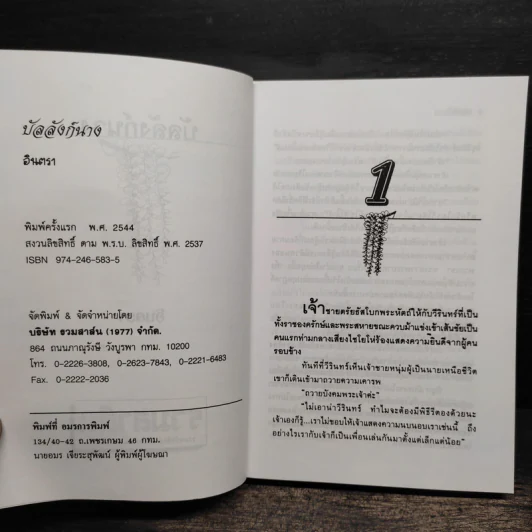 บัลลังก์นาง
อินตรา
พิมพ์ครั้งแรก พ.ศ. 2544
สงวนลิขสิทธิ์ ตาม พ.ร.บ. ลิขสิทธิ์ พ.ศ. 2537
ISBN 974-246-583-5
จัดพิมพ์ & จัดจำหน่ายโดย
บริษัท รวมสาส์น (1977) จำกัด.
864 ถนนภาณุรังษี วังบูรพา กทม. 10200
โทร. 0-2226-3808, 0-2623-7843, 0-2221-6483
Fax. 0-2222-2036
พิมพ์ที่ อมรการพิมพ์
134/40-42 ถ.เพชรเกษม 46 กทม.
นายอมร เจียระสุพัฒน์ ผู้พิมพ์ผู้โฆษณา
1
เจ้าชายตรัยธัชโบกพระหัตถ์ให้กับวีรินทร์ที่เป็น
ทั้งราชองครักษ์และพระสหายขณะควบม้าแข่งเข้าเส้นชัยเป็น
คนแรกท่ามกลางเสียงไชโยโห่ร้องแสดงความยินดีจากผู้คน
รอบข้าง
ทันทีที่วีรินทร์เห็นเจ้าชายหนุ่มผู้เป็นนายเหนือชีวิต
เขาก็เดินเข้ามาถวายความเคารพ
"ถวายบังคมพระเจ้าค่ะ"
"ไม่เอาน่าวีรินทร์ ทำไมจะต้องมีพิธีรีตองด้วยนะ
เจ้าเองก็รู้...เราไม่ชอบให้เจ้าแสดงความนบนอบเราเช่นนี้ ถึง
อย่างไรเรากับเจ้าก็เป็นเพื่อนเล่นกันมาตั้งแต่เล็กแต่น้อย"